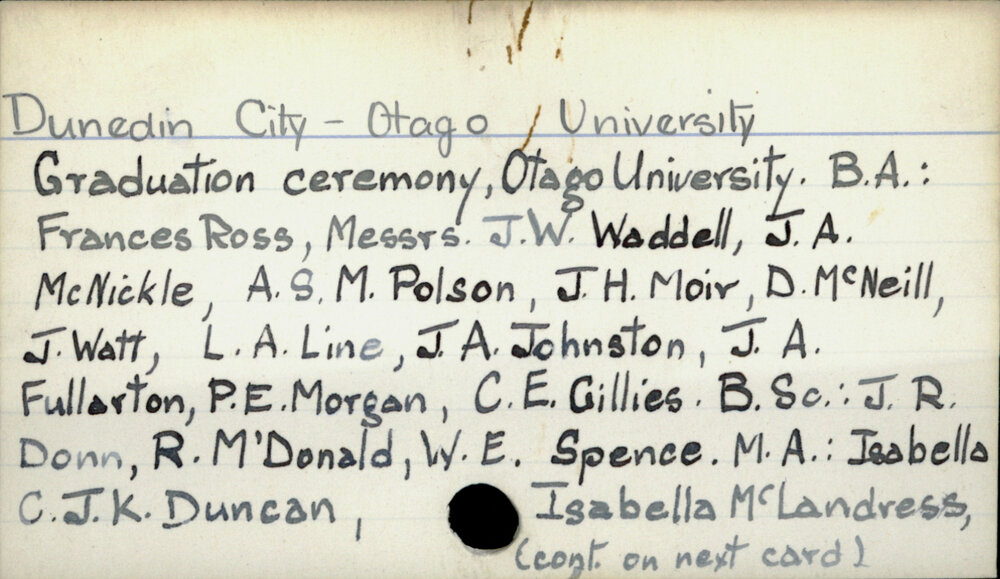 Dunedin City - Otago University
Graduation ceremony, Otago University. B.A.:
Frances Ross, Messrs. J.W. Waddell, J. A.
McNickle, A. S. M. Polson, J. H. Moir, D. McNeill,
J. Watt, L. A. Line, J. A. Johnston, J. A.
Fullarton, P. E. Morgan, C. E. Gillies. B. Sc.: J. R.
Donn, R. M'Donald, W. E. Spence. M. A.: Isabella
C. J. K. Duncan, Isabella McLandress,
(cont. on next card)